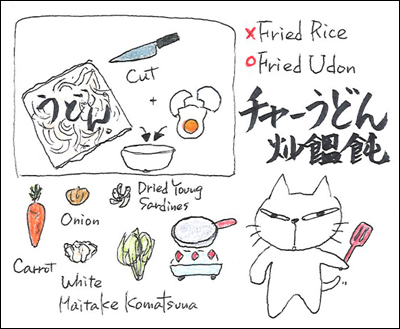 Cut
うどん
+
×Fried Rice
○Fried Udon
チャーうどん
炒饂飩
Dried Young
Sardines
Onion
Carrot
White
Maitake
Komatsuna